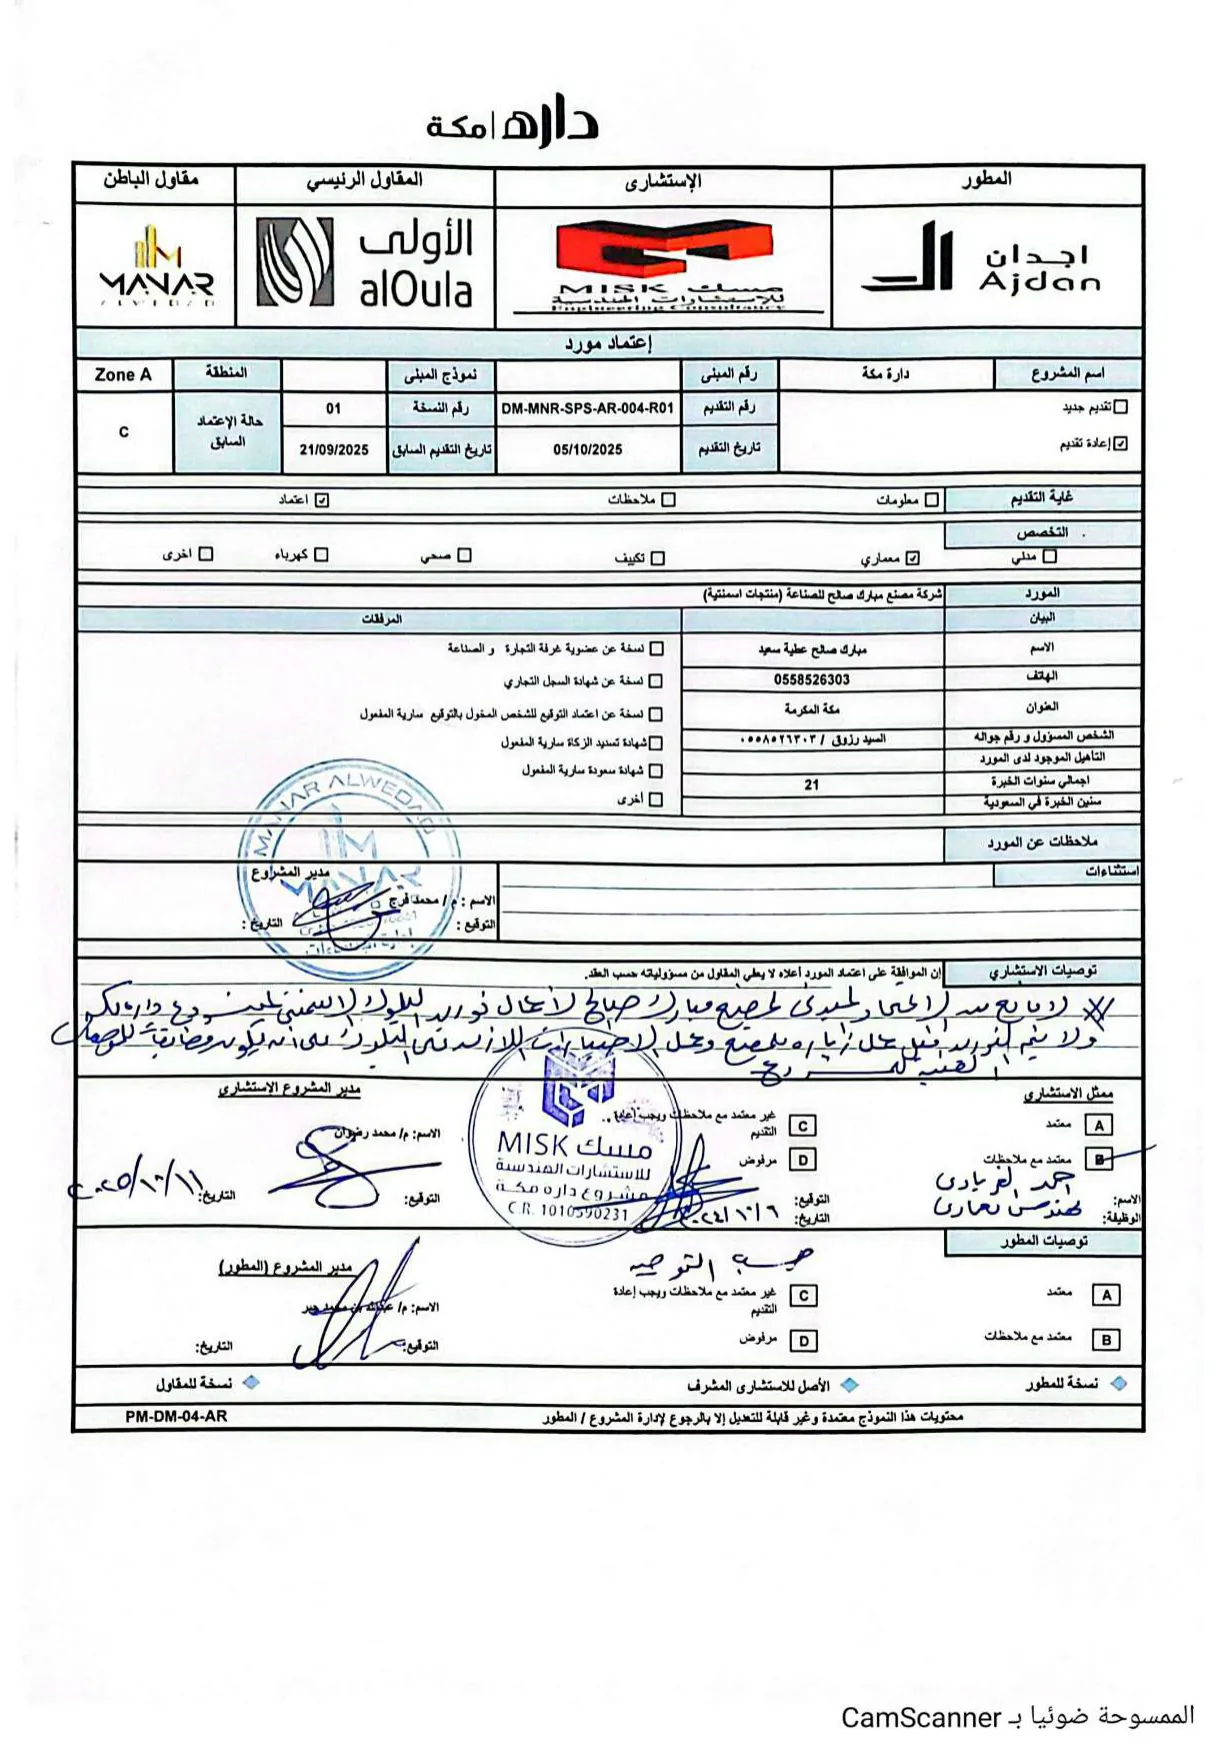 داره | مكة
المطور
الإستشارى
المقاول الرئيسي
مقاول الباطن
اجدان
Ajdan
مسك
MISK
للإستشارات الهندسية
Engineering Consultancy
الأولى
alOula
MANAR
ALWEDAD
إعتماد مورد
اسم المشروع
دارة مكة
رقم المبنى
نموذج المبنى
المنطقة
Zone A
تقديم جديد
رقم التقديم
DM-MNR-SPS-AR-004-R01
رقم النسخة
01
حالة الإعتماد السابق
C
إعادة تقديم
تاريخ التقديم
05/10/2025
تاريخ التقديم السابق
21/09/2025
غاية التقديم
معلومات
ملاحظات
اعتماد
التخصص
مدني
معماري
تكييف
صحي
كهرباء
اخرى
المورد
شركة مصنع مبارك صالح للصناعة (منتجات اسمنتية)
البيان
المرفقات
الاسم
مبارك صالح عطية سعيد
نسخة عن عضوية غرفة التجارة و الصناعة
الهاتف
0558526303
نسخة عن شهادة السجل التجاري
العنوان
مكة المكرمة
نسخة عن اعتماد التوقيع للشخص المخول بالتوقيع سارية المفعول
الشخص المسؤول و رقم جواله
السيد رزوق / ٠٥٥٨٥٢٦٣٠٣
شهادة تسديد الزكاة سارية المفعول
التأهيل الموجود لدى المورد
شهادة سعودة سارية المفعول
اجمالي سنوات الخبرة
21
سنين الخبرة في السعودية
أخرى
ملاحظات عن المورد
استثناءات
MANAR ALWEDAD
MANAR
مدير المشروع
الاسم : م / محمد فرج
التوقيع :
التاريخ :
توصيات الاستشاري
إن الموافقة على اعتماد المورد أعلاه لا يعفي المقاول من مسؤولياته حسب العقد.
لا مانع من الاعتماد المبدئي لمصنع مبارك صالح لأعمال توريد البلوك الاسمنتي لمشروع داره مكة
ولا يتم التوريد قبل عمل زيارة للمصنع وعمل الاختبارات اللازمة على البلوك على أن يكون مطابقة للمواصفات
الفنية للمشروع
ممثل الاستشاري
مدير المشروع الاستشاري
A
معتمد
C
غير معتمد مع ملاحظات ويجب إعادة التقديم
B
معتمد مع ملاحظات
D
مرفوض
الاسم: م/ محمد رضوان
الاسم:
احمد
الوظيفة:
مهندس معماري
التوقيع:
التاريخ:
التوقيع:
التاريخ:
٢٠٢٥/١٠/١١
MISK مسك
للاستشارات الهندسية
مشروع داره مكة
C.R. 1010590231
توصيات المطور
حسب التوصيه
مدير المشروع (المطور)
A
معتمد
C
غير معتمد مع ملاحظات ويجب إعادة التقديم
B
معتمد مع ملاحظات
D
مرفوض
الاسم: م/
التوقيع:
التاريخ:
نسخة للمطور
الأصل للاستشارى المشرف
نسخة للمقاول
محتويات هذا النموذج معتمدة وغير قابلة للتعديل إلا بالرجوع لإدارة المشروع / المطور
PM-DM-04-AR
الممسوحة ضوئيا بـ CamScanner